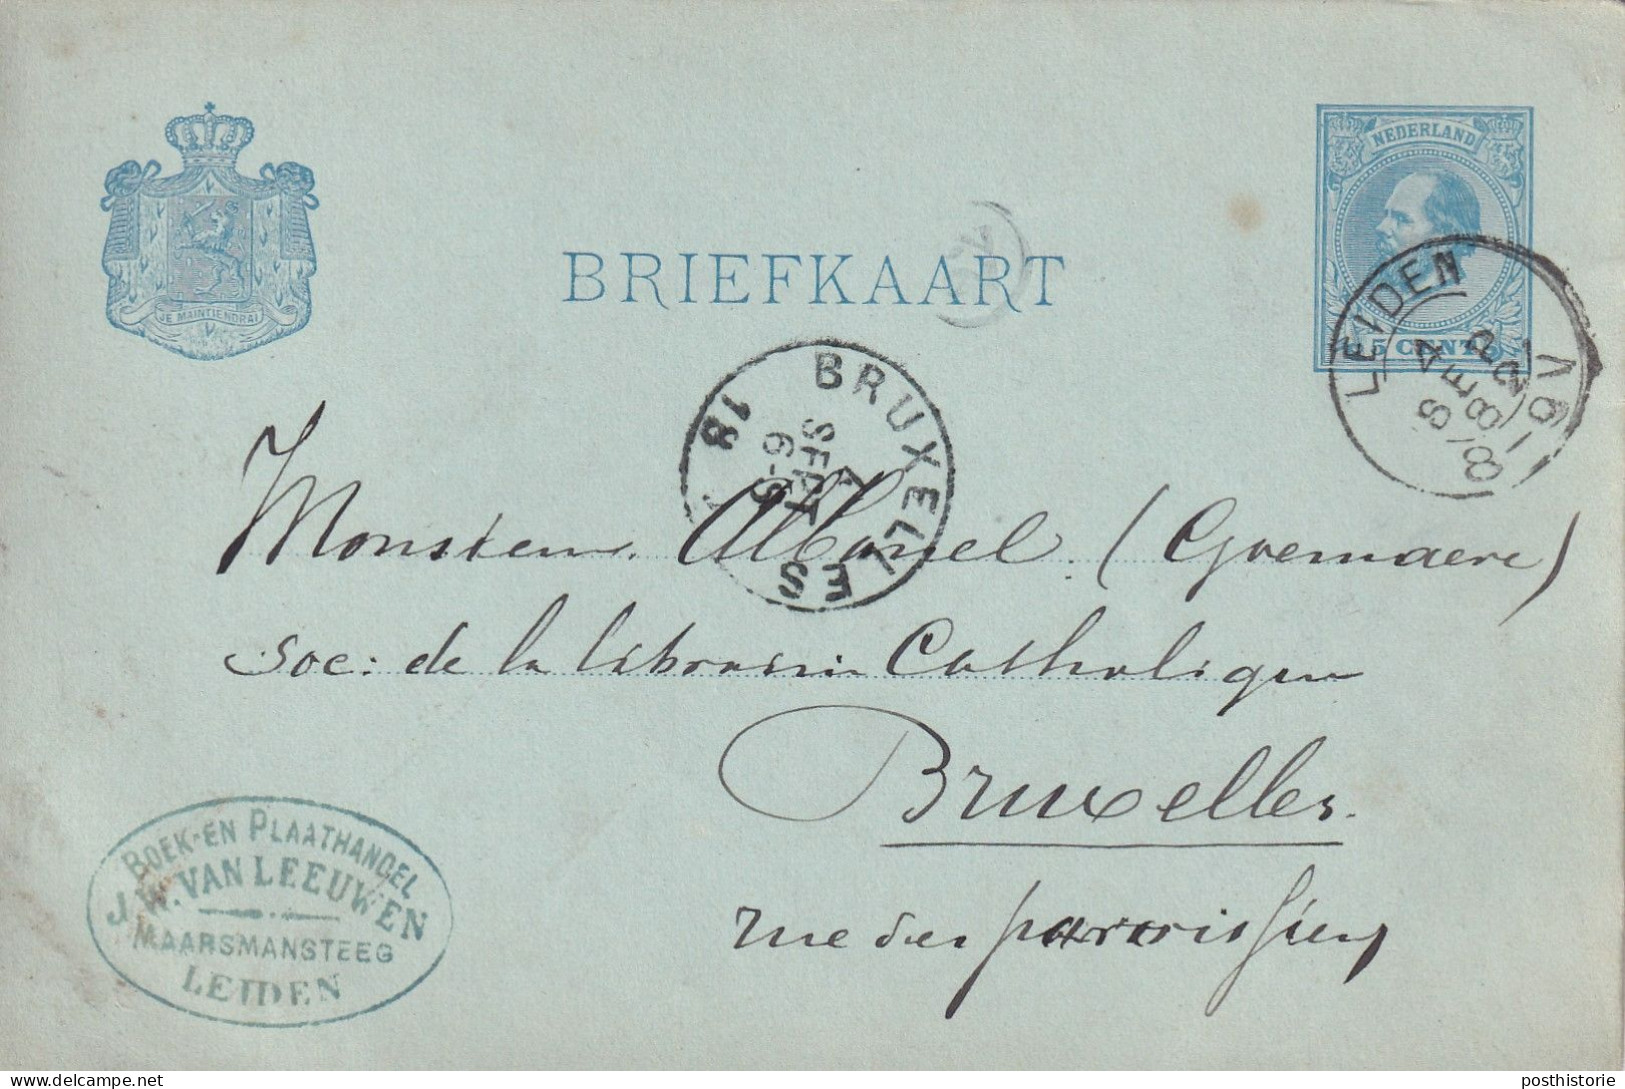 NEDERLAND
JE MAINTIENDRAI
BRIEFKAART
5 CENT
LEIDEN
4 SEP
BRUXELLES
4
SEPT
6-S
18
Monsieur Albanel (Goemaere)
Soc: de la librairie Catholique
Bruxelles.
rue des paroissiens
BOEK-EN PLAATHANDEL
J. W. VAN LEEUWEN
MAARSMANSTEEG
LEIDEN
posthistorie